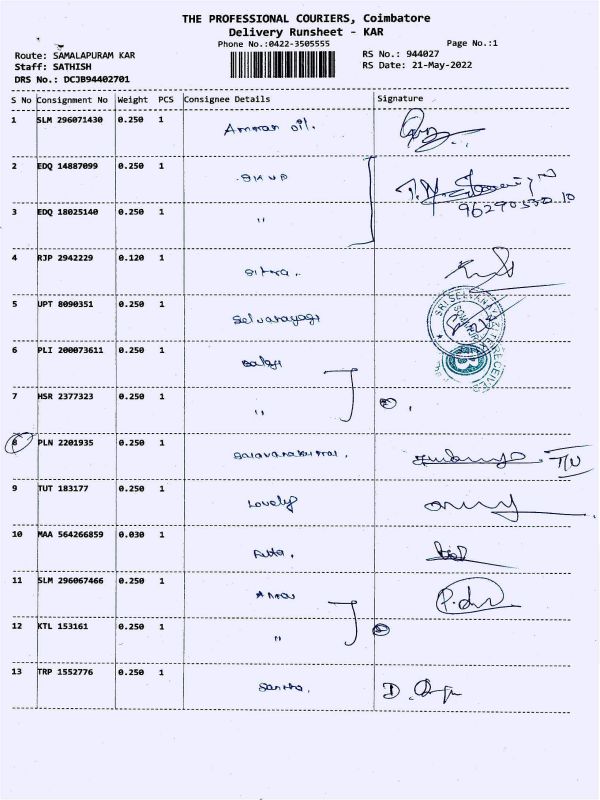 THE PROFESSIONAL COURIERS, Coimbatore
Delivery Runsheet - KAR
Phone No.:0422-3505555
Page No.:1
Route: SAMALAPURAM KAR
RS No.: 944027
Staff: SATHISH
RS Date: 21-May-2022
DRS No.: DCJB94402701
S No Consignment No Weight PCS Consignee Details Signature
1 SLM 296071430 0.250 1 Amman oil.
2 EDQ 14887099 0.250 1
3 EDQ 18025140 0.250 1 "
4 RJP 2942229 0.120 1
5 UPT 8090351 0.250 1 Selvanayagi
6 PLI 200073611 0.250 1 Balaji
7 HSR 2377323 0.250 1 "
8 PLN 2201935 0.250 1 T/N
9 TUT 183177 0.250 1 Lovely
10 MAA 564266859 0.030 1
11 SLM 296067466 0.250 1
12 KTL 153161 0.250 1 "
13 TRP 1552776 0.250 1